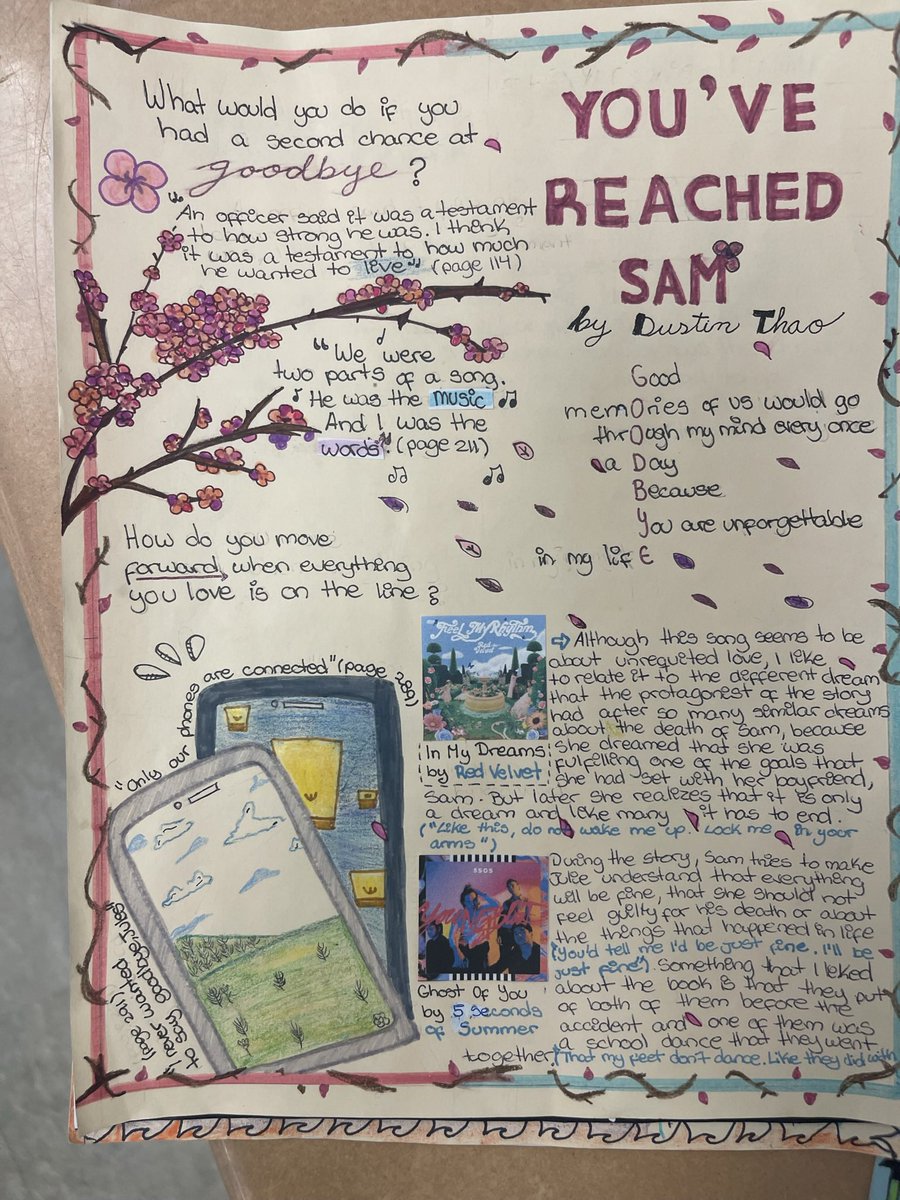 What would you do if you
had a second chance at
goodbye ?
"An officer said it was a testament
to how strong he was. I think
it was a testament to how much
he wanted to live" (page 114)
YOU'VE
REACHED
SAM
by Dustin Thao
"We were
two parts of a song.
He was the music
And I was the
words". (page 211)
Good
memOries of us would go
thrOugh my mind every once
a Day
Because
You are unforgettable
in my lifE
How do you move
forward, when everything
you love is on the line?
"Only our phones are connected" (page 289)
"I never wanted
to say goodbye, Jules"
(page 201)
Feel My Rhythm
Red Velvet
In My Dreams
by Red Velvet
⇨ Although this song seems to be
about unrequited love, I like
to relate it to the different dream
that the protagonist of the story
had after so many similar dreams
about the death of Sam, because
she dreamed that she was
fulfilling one of the goals that
she had set with her boyfriend,
Sam. But later she realizes that it is only
a dream and like many it has to end.
("Like this, do not wake me up. Lock me in your
arms")
5SOS
Youngblood
Ghost Of You
by 5 Seconds
of Summer
During the story, Sam tries to make
Julie understand that everything
will be fine, that she should not
feel guilty for his death or about
the things that happened in life
("You'd tell me I'd be just fine. I'll be
just fine"). Something that I leked
about the book is that they put
of both of them before the
accident and one of them was
a school dance that they went
together. "That my feet don't dance. Like they did with